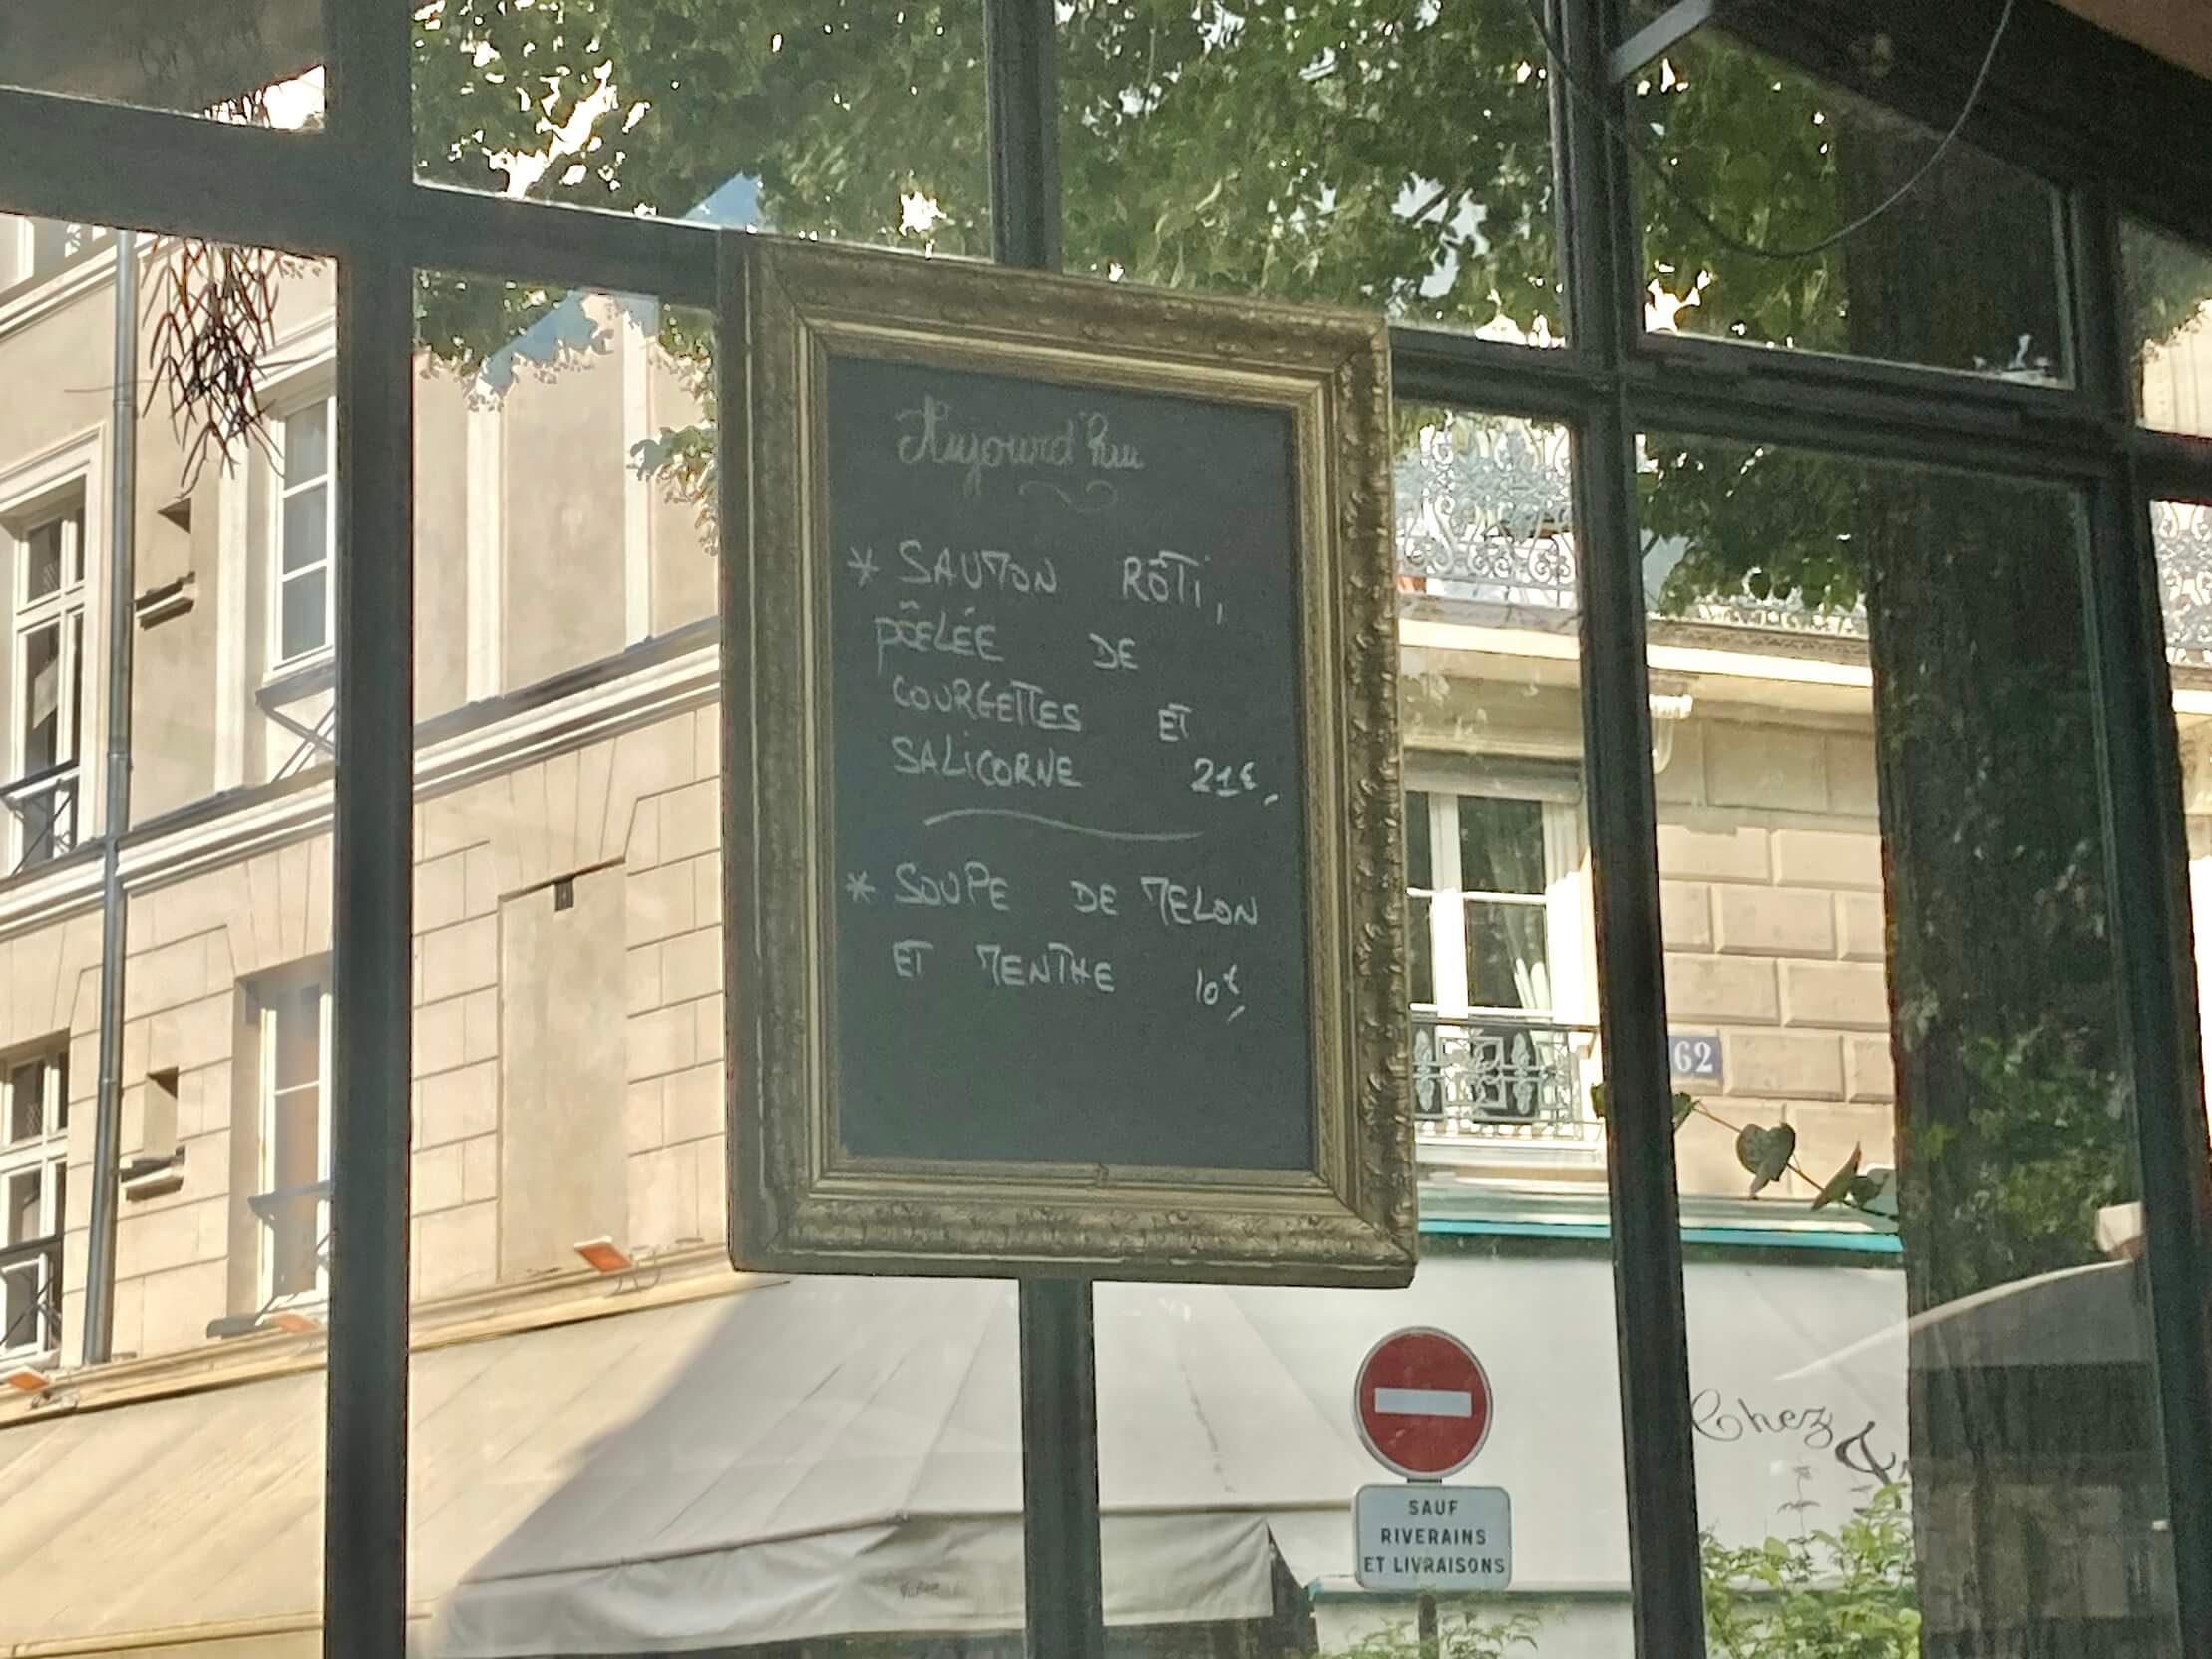 Aujourd'hui
* SAUMON RÔTI,
PÔELÉE DE
COURGETTES ET
SALICORNE 21€,
* SOUPE DE MELON
ET MENTHE 10€,
62
Chez
SAUF
RIVERAINS
ET LIVRAISONS